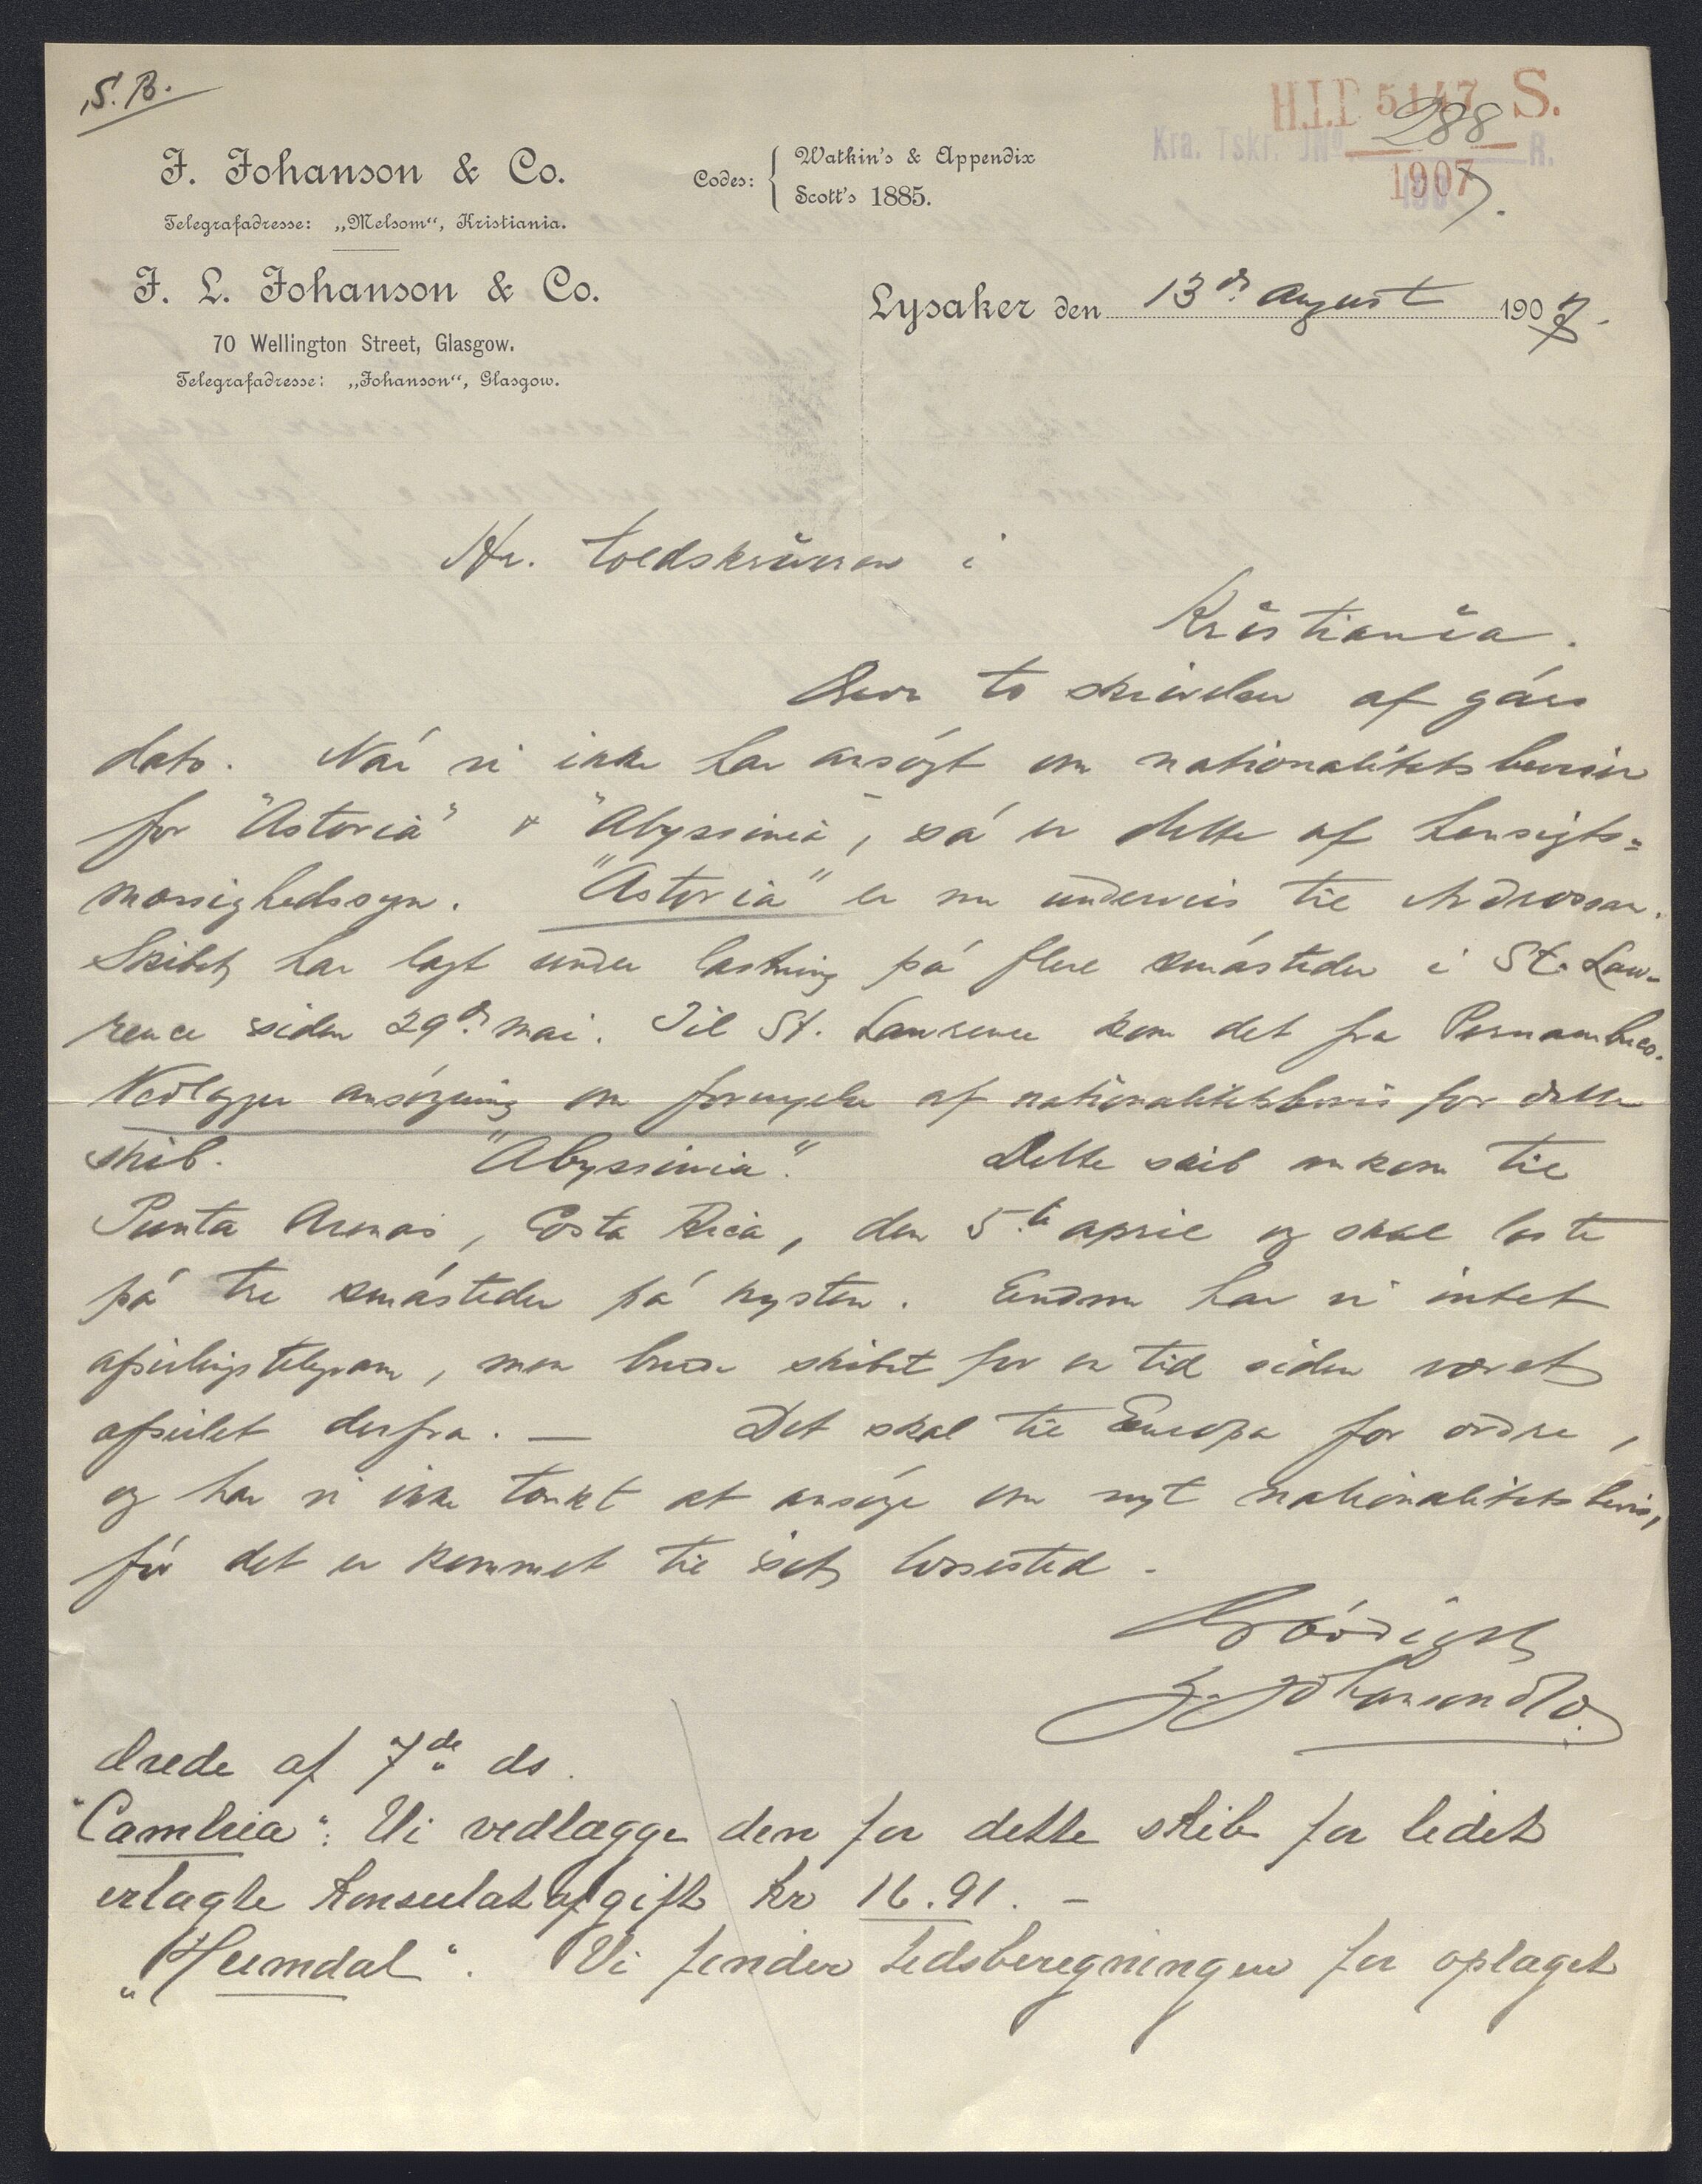 S. B.
H.I.D 5147 S.
Kra. Tskr. JNo 288 R.
1907
J. Johanson & Co.
Telegrafadresse: „Melsom“, Kristiania.
Codes: { Watkin's & Appendix
Scott's 1885.
J. L. Johanson & Co.
70 Wellington Street, Glasgow.
Telegrafadresse: „Johanson“, Glasgow.
Lysaker den 13de August 1907.
Hr. toldskriveren i
Kristiania.
Deres to skrivelser af gårs
dato. Når vi ikke har ansøgt om nationalitetsbeviser
for "Astoria" & "Abyssinia", så er dette af hensigts=
mæssighedssyn. "Astoria" er nu underveis til Ardrossan.
Skibet har lagt under lastning på flere småsteder i St. Law-
rence siden 29de mai. Til St. Lawrence kom det fra Pernambuco.
Vedlægger ansøgning om fornyelse af nationalitetsbevis for dette
skib. "Abyssinia". Dette skib ankom til
Punta Arenas, Costa Rica, den 5te april og skal laste
på tre småsteder på kysten. Endnu har vi intet
afseilingstelegram, men burde skibet for en tid siden været
afseilet derfra. — Det skal til Europa for ordre,
og har vi ikke tænkt at ansøge om nyt nationalitetsbevis,
før det er kommet til sit lossested.
Ærbødigst
J. Johanson & Co.
drede af 7de ds.
"Cambria": Vi vedlægge den for dette skib for lidet
erlagte Konsulatafgift kr 16.91. –
„Heimdal“. Vi finder tidsberegningen for oplaget